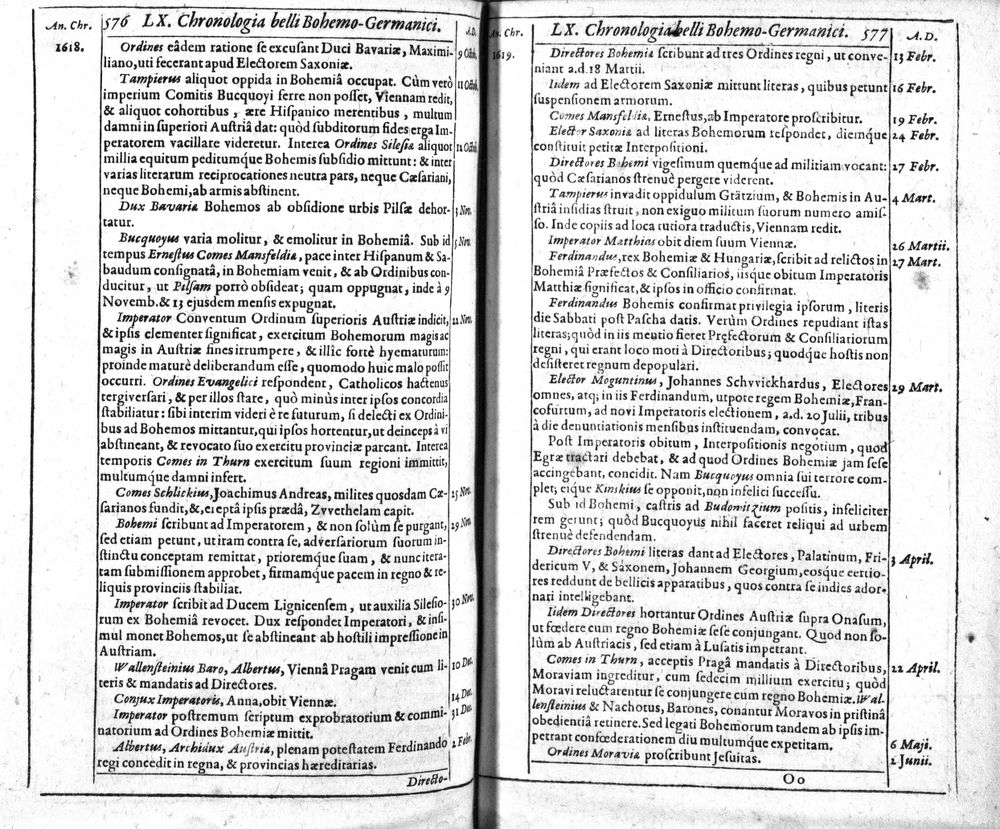 An. Chr. 576 LX. Chronologia belli Bohemo-Germanici. A.D.
1618. Ordines eâdem ratione se excusant Duci Bavariæ, Maximi- 9 Octob.
liano, uti fecerant apud Electorem Saxoniæ.
Tampierus aliquot oppida in Bohemiâ occupat. Cùm verò 11 Octob.
imperium Comitis Bucquoyi ferre non posset, Viennam redit,
& aliquot cohortibus, ære Hispanico merentibus, multum
damni in superiori Austriâ dat: quòd subditorum fides erga Im-
peratorem vacillare videretur. Interea Ordines Silesiæ aliquot
millia equitum peditumque Bohemis subsidio mittunt: & inter
varias literarum reciprocationes neutra pars, neque Cæsariani,
neque Bohemi, ab armis abstinent.
Dux Bavariæ Bohemos ab obsidione urbis Pilsæ dehor- 3 Nov.
tatur.
Bucquoyus varia molitur, & emolitur in Bohemiâ. Sub id 5 Nov.
tempus Ernestus Comes Mansfeldiæ, pace inter Hispanum & Sa-
baudum consignatâ, in Bohemiam venit, & ab Ordinibus con-
ducitur, ut Pilsam porrò obsideat; quam oppugnat, inde à 9
Novemb. & 13 ejusdem mensis expugnat.
Imperator Conventum Ordinum superioris Austriæ indicit, 22 Nov.
& ipsis clementer significat, exercitum Bohemorum magis ac
magis in Austriæ fines irrumpere, & illîc fortè hyematurum:
proinde maturè deliberandum esse, quomodo huic malo possit
occurri. Ordines Evangelici respondent, Catholicos hactenus
tergiversari, & per illos stare, quò minùs inter ipsos concordia
stabiliatur: sibi interim videri è re futurum, si delecti ex Ordini-
bus ad Bohemos mittantur, qui ipsos hortentur, ut deinceps à vi
abstineant, & revocato suo exercitu provinciæ parcant. Interea
temporis Comes in Thurn exercitum suum regioni immittit,
multumque damni infert.
Comes Schlickius, Joachimus Andreas, milites quosdam Cæ- 25 Nov.
sarianos fundit, &, ereptâ ipsis prædâ, Zvvethelam capit.
Bohemi scribunt ad Imperatorem, & non solùm se purgant, 29 Nov.
sed etiam petunt, ut iram contra se, adversariorum suorum in-
stinctu conceptam remittat, prioremque suam, & nunc itera-
tam submissionem approbet, firmamque pacem in regno & re-
liquis provinciis stabiliat.
Imperator scribit ad Ducem Lignicensem, ut auxilia Silesio- 30 Nov.
rum ex Bohemiâ revocet. Dux respondet Imperatori, & insi-
mul monet Bohemos, ut se abstineant ab hostili impressione in
Austriam.
Wallensteinius Baro, Albertus, Viennâ Pragam venit cum li- 10 Dec.
teris & mandatis ad Directores.
Conjux Imperatoris, Anna, obit Viennæ. 14 Dec.
Imperator postremum scriptum exprobratorium & commi- 31 Dec.
natorium ad Ordines Bohemiæ mittit.
Albertus, Archidux Austriæ, plenam potestatem Ferdinando 2 Febr.
regi concedit in regna, & provincias hæreditarias.
Directo-
An. Chr. LX. Chronologia belli Bohemo-Germanici. 577 A.D.
1619. Directores Bohemiæ scribunt ad tres Ordines regni, ut conve- 13 Febr.
niant a.d. 18 Martii.
Iidem ad Electorem Saxoniæ mittunt literas, quibus petunt 16 Febr.
suspensionem armorum.
Comes Mansfeldiæ, Ernestus, ab Imperatore proscribitur. 19 Febr.
Elector Saxoniæ ad literas Bohemorum respondet, diemque 24 Febr.
constituit petitæ Interpositioni.
Directores Bohemi vigesimum quemque ad militiam vocant: 27 Febr.
quòd Cæsarianos strenuè pergere viderent.
Tampierus invadit oppidulum Grätzium, & Bohemis in Au- 4 Mart.
striâ insidias struit, non exiguo militum suorum numero amis-
so. Inde copiis ad loca tutiora traductis, Viennam redit.
Imperator Matthias obit diem suum Viennæ. 26 Martii.
Ferdinandus, rex Bohemiæ & Hungariæ, scribit ad relictos in 27 Mart.
Bohemiâ Præfectos & Consiliarios, iisque obitum Imperatoris
Matthiæ significat, & ipsos in officio confirmat.
Ferdinandus Bohemis confirmat privilegia ipsorum, literis
die Sabbati post Pascha datis. Verùm Ordines repudiant istas
literas; quòd in iis mentio fieret Pręfectorum & Consiliariorum
regni, qui erant loco moti à Directoribus; quodque hostis non
desisteret regnum depopulari.
Elector Moguntinus, Johannes Schvvickhardus, Electores 29 Mart.
omnes, atq; in iis Ferdinandum, utpote regem Bohemiæ, Fran-
cofurtum, ad novi Imperatoris electionem, a.d. 20 Julii, tribus
à die denuntiationis mensibus instituendam, convocat.
Post Imperatoris obitum, Interpositionis negotium, quod
Egræ tractari debebat, & ad quod Ordines Bohemiæ jam sese
accingebant, concidit. Nam Bucquoyus omnia sui terrore com-
plet; eique Kinskius se opponit, non infelici successu.
Sub id Bohemi, castris ad Budowitzium positis, infeliciter
rem gerunt; quòd Bucquoyus nihil faceret reliqui ad urbem
strenuè defendendam.
Directores Bohemi literas dant ad Electores, Palatinum, Fri- 3 April.
dericum V, & Saxonem, Johannem Georgium, eosque certio-
res reddunt de bellicis apparatibus, quos contra se indies ador-
nari intelligebant.
Iidem Directores hortantur Ordines Austriæ supra Onasum,
ut fœdere cum regno Bohemiæ sese conjungant. Quod non so-
lùm ab Austriacis, sed etiam à Lusatis impetrant.
Comes in Thurn, acceptis Pragâ mandatis à Directoribus, 22 April.
Moraviam ingreditur, cum sedecim millium exercitu; quòd
Moravi reluctarentur se conjungere cum regno Bohemiæ. Wal-
lensteinius & Nachotus, Barones, conantur Moravos in pristinâ
obedientiâ retinere. Sed legati Bohemorum tandem ab ipsis im-
petrant confœderationem diu multumque expetitam. 6 Maji.
Ordines Moraviæ proscribunt Jesuitas. 2 Junii.
Oo